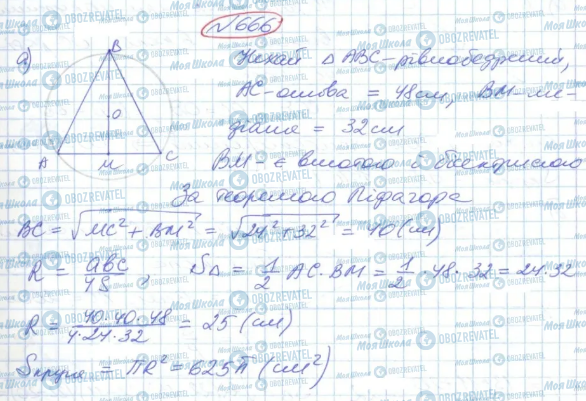 №666
а)
B
O
A
M
C
Нехай △ ABC - рівнобедрений,
AC - основа = 48 см, BM - ме-
діана = 32 см
BM - є висотою і бісектрисою
За теоремою Піфагора
BC = √MC² + BM² = √24² + 32² = 40 (см)
R = abc/4S, S△ = 1/2 AC · BM = 1/2 · 48 · 32 = 24 · 32
R = 40 · 40 · 48/4 · 24 · 32 = 25 (см)
Sкруга = πR² = 625π (см²)
Моя Школа
OBOZREVATEL